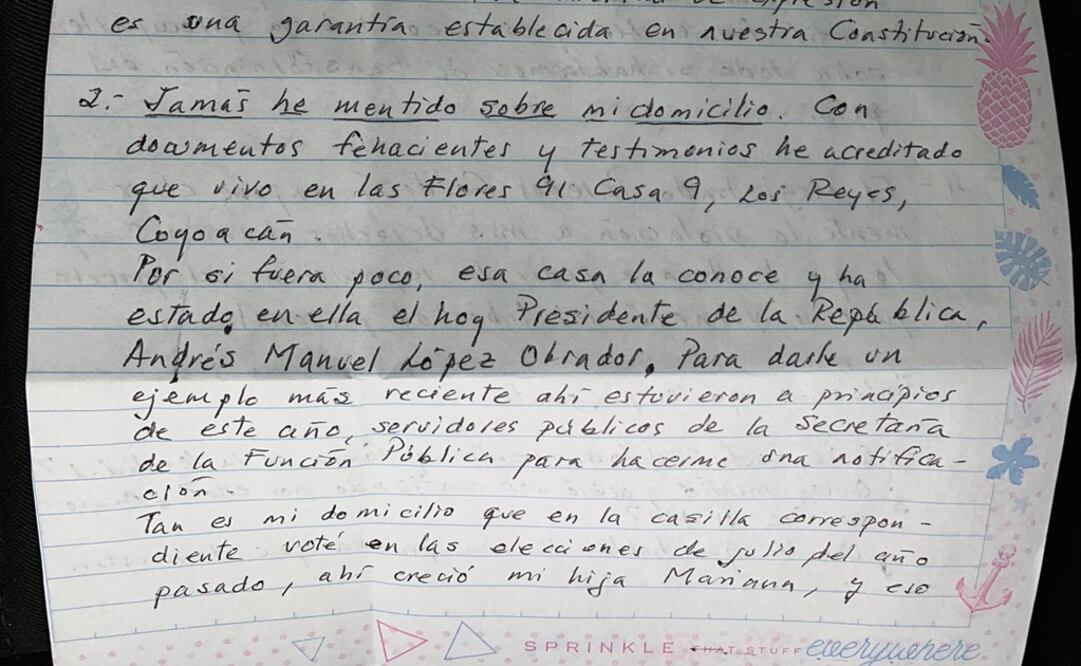 de expresión
es una garantía establecida en nuestra Constitución.
2.- Jamás he mentido sobre mi domicilio. Con
documentos fehacientes y testimonios he acreditado
que vivo en las Flores 91 Casa 9, Los Reyes,
Coyoacán.
Por si fuera poco, esa casa la conoce y ha
estado en ella el hoy Presidente de la República,
Andrés Manuel López Obrador. Para darle un
ejemplo más reciente ahí estuvieron a principios
de este año, servidores públicos de la Secretaría
de la Función Pública para hacerme una notifica-
ción.
Tan es mi domicilio que en la casilla correspon-
diente voté en las elecciones de julio del año
pasado, ahí creció mi hija Mariana, y eso
SPRINKLE THAT STUFF everywhere